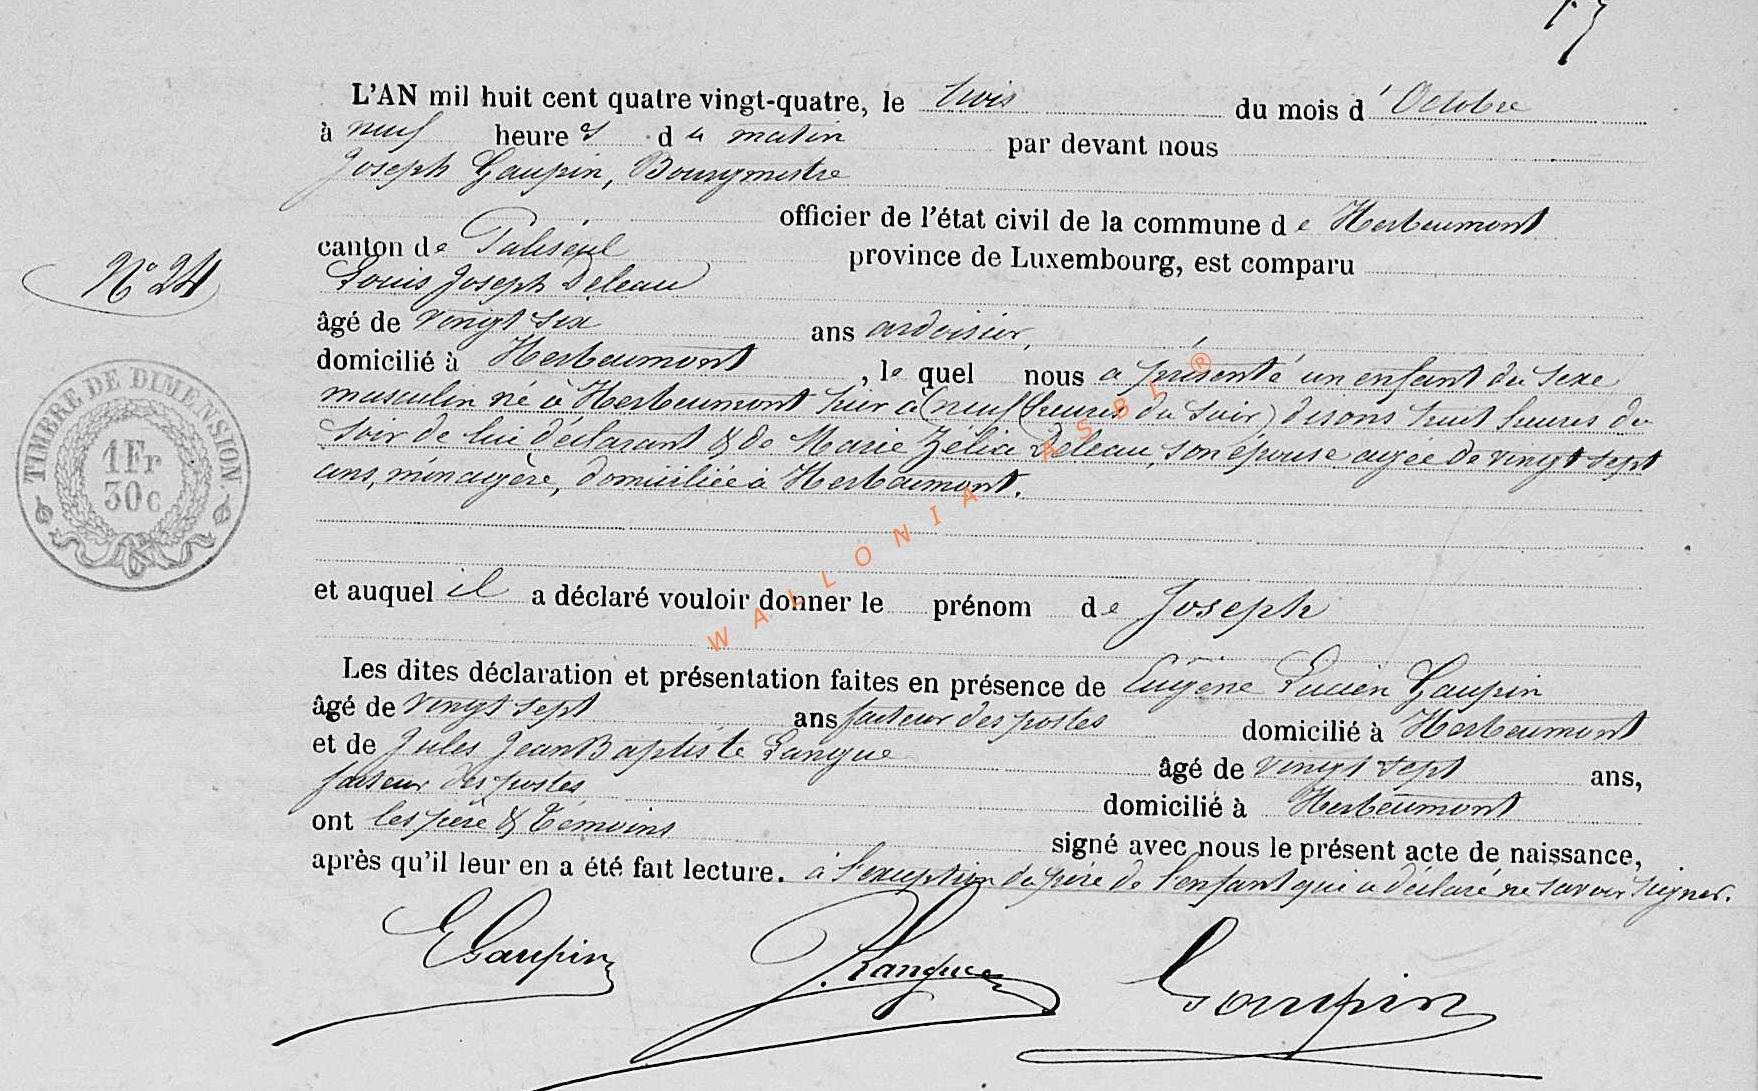 L'AN mil huit cent quatre vingt-quatre, le trois du mois d'Octobre
à neuf heures du matin par devant nous
Joseph Gaupin, Bourgmestre
officier de l'état civil de la commune de Herbeumont
canton de Paliseul province de Luxembourg, est comparu
Louis Joseph Deleau
âgé de vingt six ans ardoisier,
domicilié à Herbeumont, lequel nous a présenté un enfant du sexe
masculin né à Herbeumont hier à (neuf heures du soir) disons huit heures du
soir de lui déclarant & de Marie Zélia Deleau, son épouse agée de vingt sept
ans, ménagère, domiciliée à Herbeumont.
et auquel il a déclaré vouloir donner le prénom de Joseph
Les dites déclaration et présentation faites en présence de Eugène Lucien Gaupin
âgé de vingt sept ans facteur des postes domicilié à Herbeumont
et de Jules Jean Baptiste Langue âgé de vingt sept ans,
facteur des postes domicilié à Herbeumont
ont les père & témoins signé avec nous le présent acte de naissance,
après qu'il leur en a été fait lecture. à l'exception du père de l'enfant qui a déclaré ne savoir signer.
EGaupin JLangue Gaupin
N° 24
TIMBRE DE DIMENSION
1 Fr
30 c
WALLONIA ASBL ®